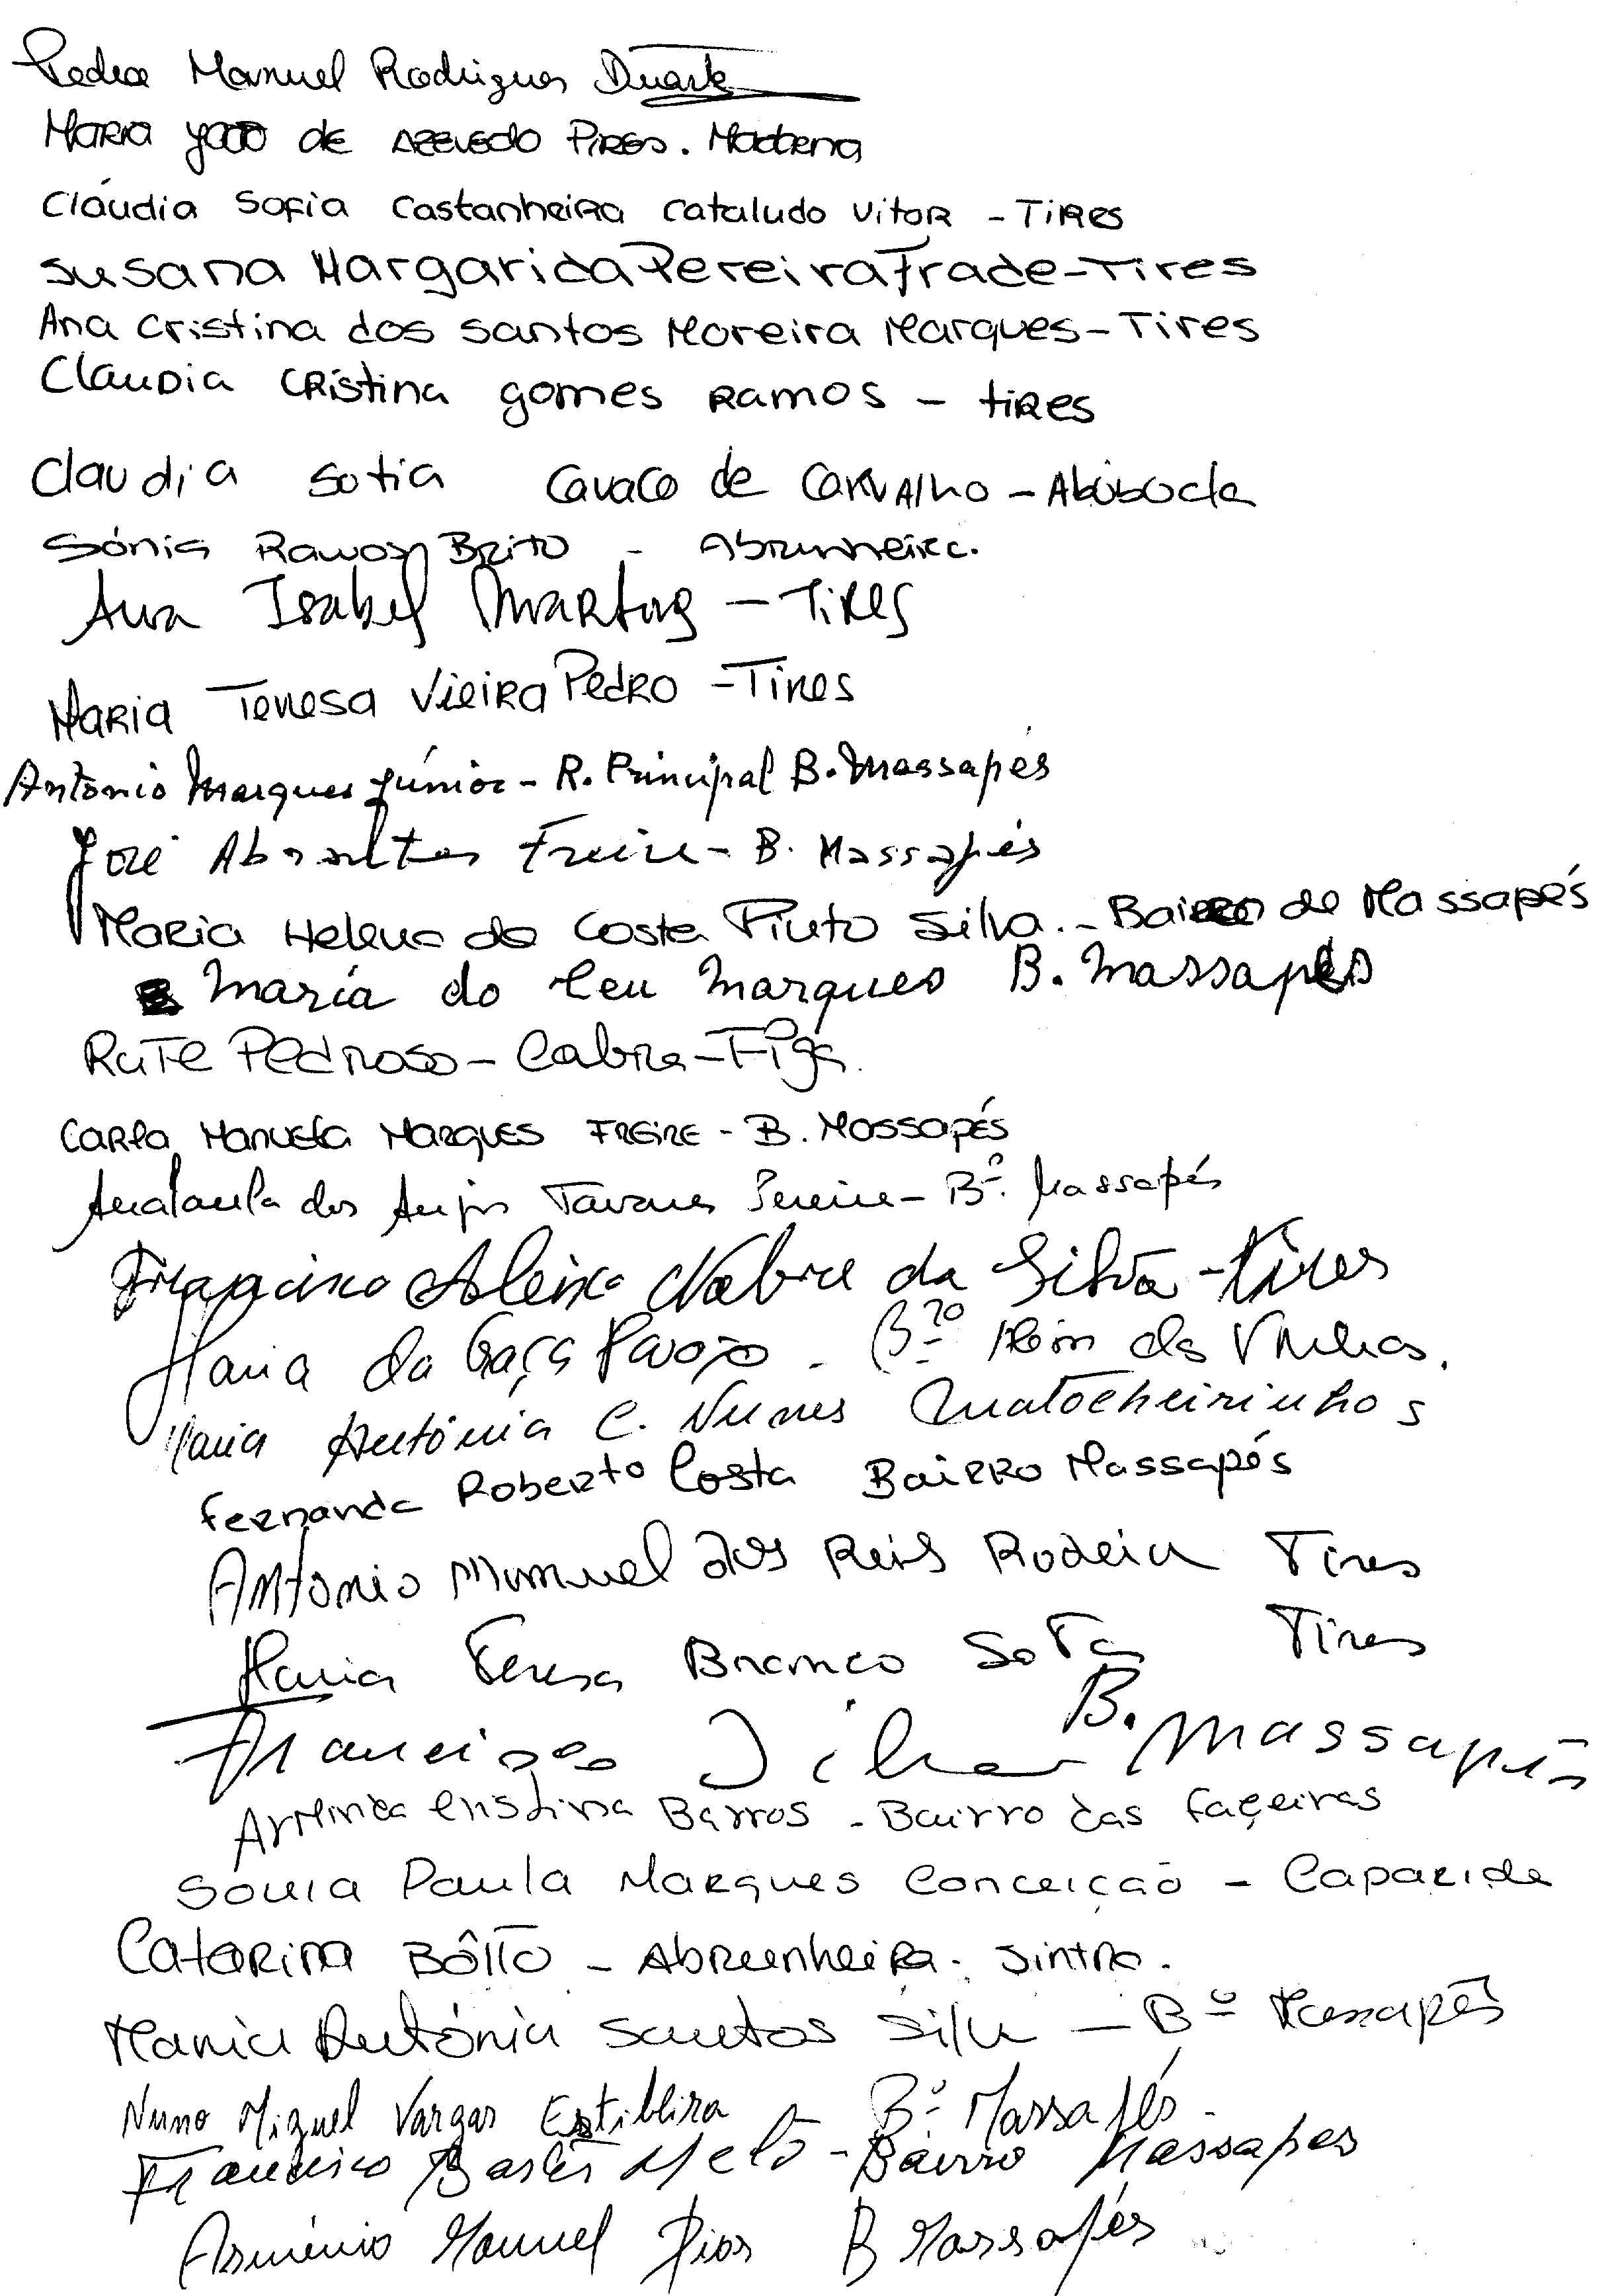 Pedro Manuel Rodrigues Duarte
MARIA João de AZEVEDO PIRES. Madorna
Cláudia Sofia Castanheira Cataludo Vitor - TIRES
Susana Margarida Pereira Frade - Tires
Ana Cristina dos Santos Moreira Marques - Tires
Claudia Cristina gomes Ramos - tires
Claudia Sofia Cavaco de Carvalho - Abóboda
Sónia Ramos Brito - Abrunheira.
Ana Isabel Martins - Tires
Maria Teresa Vieira Pedro - Tires
Antonio Marques Júnior - R. Principal B. Massapés
José Freire - B. Massapés
Maria Helena da Costa Pinto Silva. - Bairro de Massapés
Maria do Ceu Marques B. Massapés
Rute Pedroso - Cabra - Figa.
Carla Manuela Marques Freire - B. Mossapés
Ana Paula dos Anjos Tavares Pereira - Bº. Massapés
Francisco Aleixo Nobre da Silva - Tires
Maria da Graça - Bro Além das Vinhas.
Maria Antónia C. Nunes Matocheirinhos
Fernanda Roberto Costa Bairro Massapés
Antonio Manuel dos Reis Rodeia Tires
Maria Teresa Branco Sota Tires
Francisco B. Massapés
Arminda Cristina Barros - Bairro das Façeiras
Sonia Paula Marques Conceição - Caparide
Catarina Bôtto - Abrunheira. Sintra.
Maria Antónia Santos Silva - Bº Massapés
Nuno Miguel Vargas Bº Massapés.
Francisco Melo - Bairro Massapes
Arménio Manuel Dias B Massapés